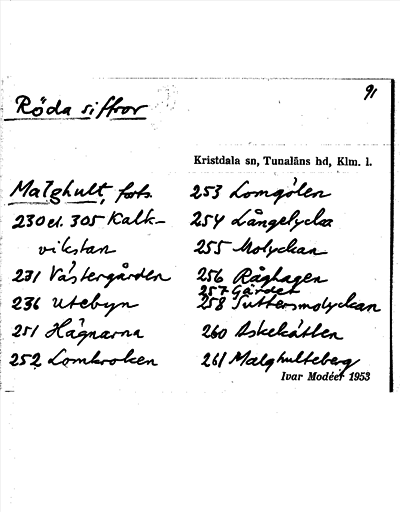 91
Röda siffror
Kristdala sn, Tunaläns hd, Klm. l.
Malghult, forts.
230 el. 305 Kalk-
vikstan
231 Västergården
236 Utebyn
251 Hägnarna
252 Lomkroken
253 Lomgölen
254 Långelycka
255 Molyckan
256 Råghagen
257 Gärdet
258 Tuttersmolyckan
260 Askekätten
261 Malghulteberg
Ivar Modéer 1953